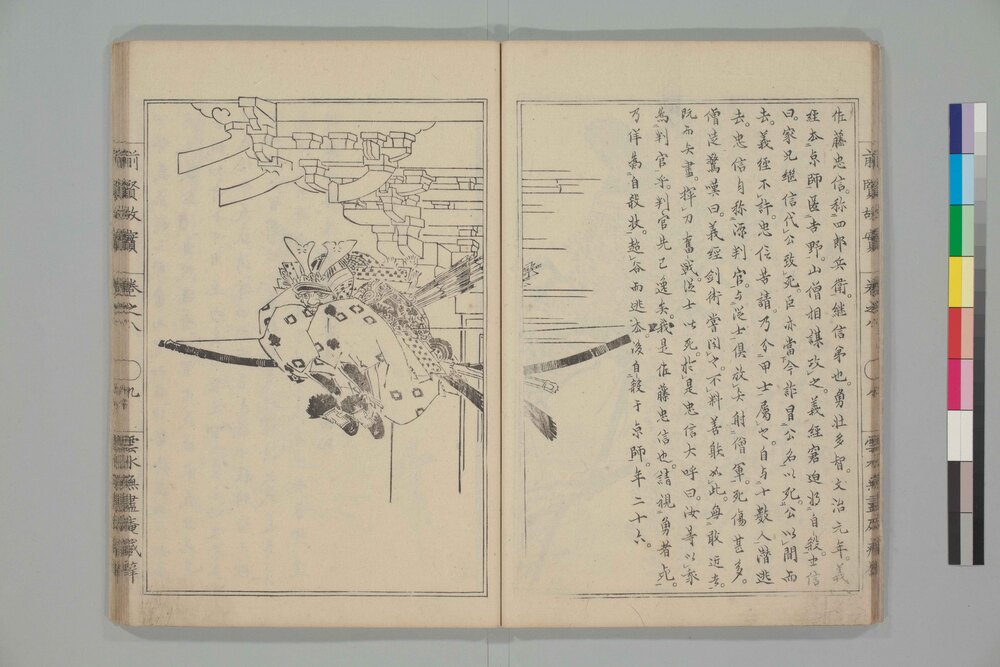 佐藤忠信。称四郎兵衛。継信弟也。勇壮多智。文治元年。義
経去京師匿吉野。山僧相謀攻之。義経窘迫将自殺。忠信
曰。家兄継信代公致死。臣亦当今詐冒公名以死。公以間而
去。義経不許。忠信苦請。乃分甲士属之。自与十数人潜逃
去。忠信自称源判官。与従士倶放矢射僧軍。死傷甚多。
僧徒驚嘆曰。義経剣術嘗聞之。不料善射如此。無敢近者。
既而矢尽。揮刀奮戦。従士皆死。於是忠信大呼曰。汝等以我
為判官乎。判官先已逸矣。我是佐藤忠信也。請視勇者死。
乃佯為自殺状。超谷而逃去。後自殺于京師。年二十六。
前賢故實
巻之八
雲水無盡庵蔵